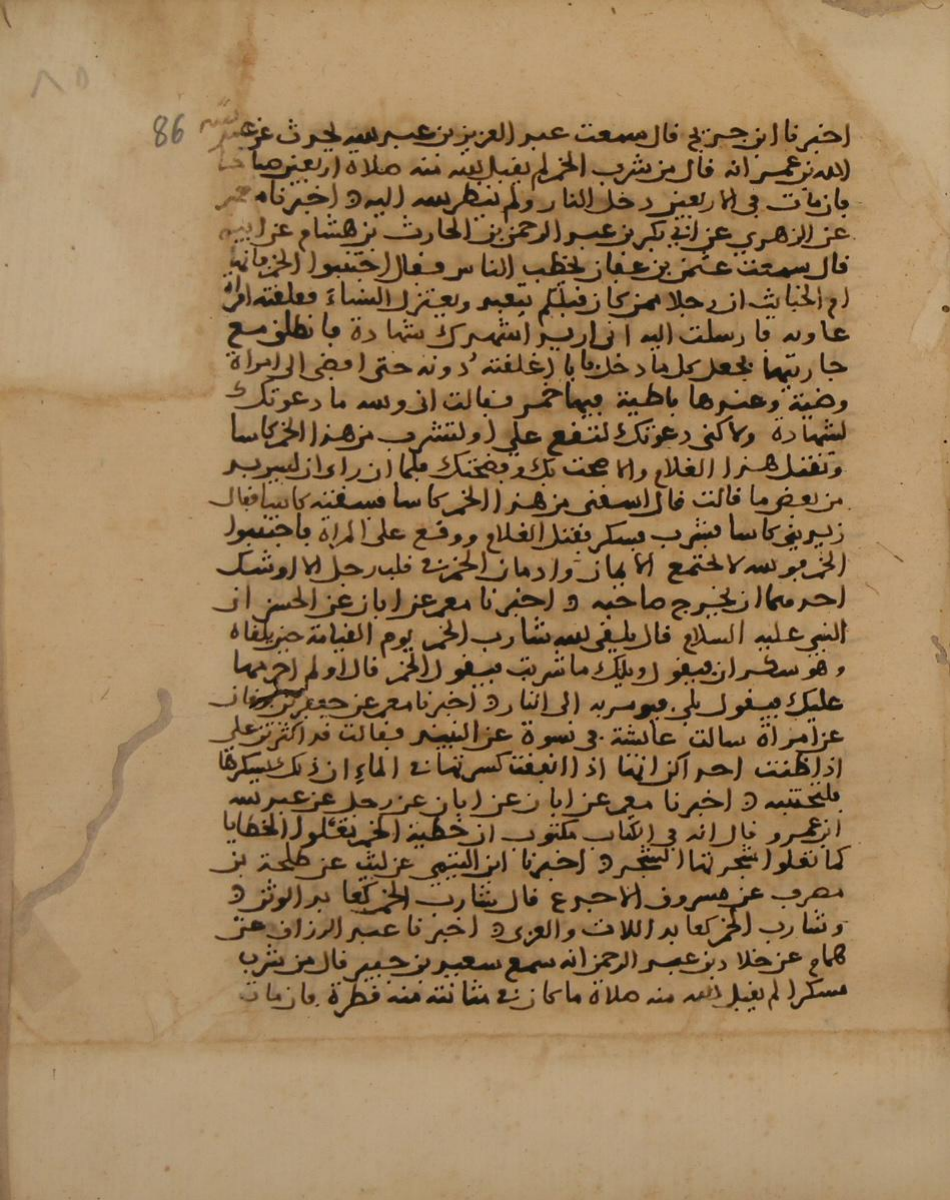 86
اخبرنا ابن جريج قال سمعت عبد العزيز بن عبد الله يحدث عن عبد
الله بن عمر انه قال من شرب الخمر لم يقبل الله منه صلاة اربعين صباحا
فان مات في الاربعين دخل النار ولم ينظر الله اليه واخبرنا معمر
عن الزهري عن ابي بكر بن عبد الرحمن بن الحارث بن هشام عن ابيه
قال سمعت عثمن بن عفان يخطب الناس فقال اجتنبوا الخمر فانها
ام الخبايث ان رجلا ممن كان قبلكم يتعبد ويعتزل النساء فعلقته امراة
غاوية فارسلت اليه اني اريد اشهدك شهادة فانطلق مع
جاريتها فجعل كل ما دخل بابا اغلقته دونه حتى افضى الى امراة
وضية وعندها باطية فيها خمر فقالت اني والله ما دعوتك
لشهادة ولاكني دعوتك لتقع علي او لتشرب من هذا الخمر كاسا
وتقتل هذا الغلام والا صحت بك وفضحتك فلما ان راى ان ليس بد
من بعض ما قالت قال اسقني من هذا الخمر كاسا فسقته كاسا فقال
زيديني كاسا فشرب فسكر فقتل الغلام ووقع على المراة فاجتنبوا
الخمر فوالله لا يجتمع الايمان وادمان الخمر في قلب رجل الا اوشك
احدهما ان يخرج صاحبه واخبرنا معمر عن ابان عن الحسن ان
النبي عليه السلام قال يلقى الله شارب الخمر يوم القيامة حين يلقاه
وهو سكران فيقول ويلك ما شربت فيقول الخمر قال اولم احرمها
عليك فيقول بلى فيومر به الى النار واخبرنا معمر عن جعفر بن برقان
عن امراة سالت عائشة في نسوة عن النبيذ فقالت قد اكثرتن علي
اذا ظنت احداكن انها اذا انقعت كسرتها في الماء ان ذلك يسكرها
فلتجتنبه واخبرنا معمر عن ابان عن رجل عن عبد الله
ابن عمرو قال انه في الكتاب مكتوب ان خطية الخمر تعلوا الخطايا
كما تعلوا شجرتها الشجر واخبرنا ابن التيمي عن ليث عن طلحة بن
مصرف عن مسروق الاجدع قال شارب الخمر كعابد الوثن
وشارب الخمر كعابد اللات والعزى واخبرنا عبد الرزاق عن
همام عن خلاد بن عبد الرحمن انه سمع سعيد بن جبير قال من شرب
مسكرا لم يقبل الله منه صلاة ما كان في مثانته منه قطرة فان مات